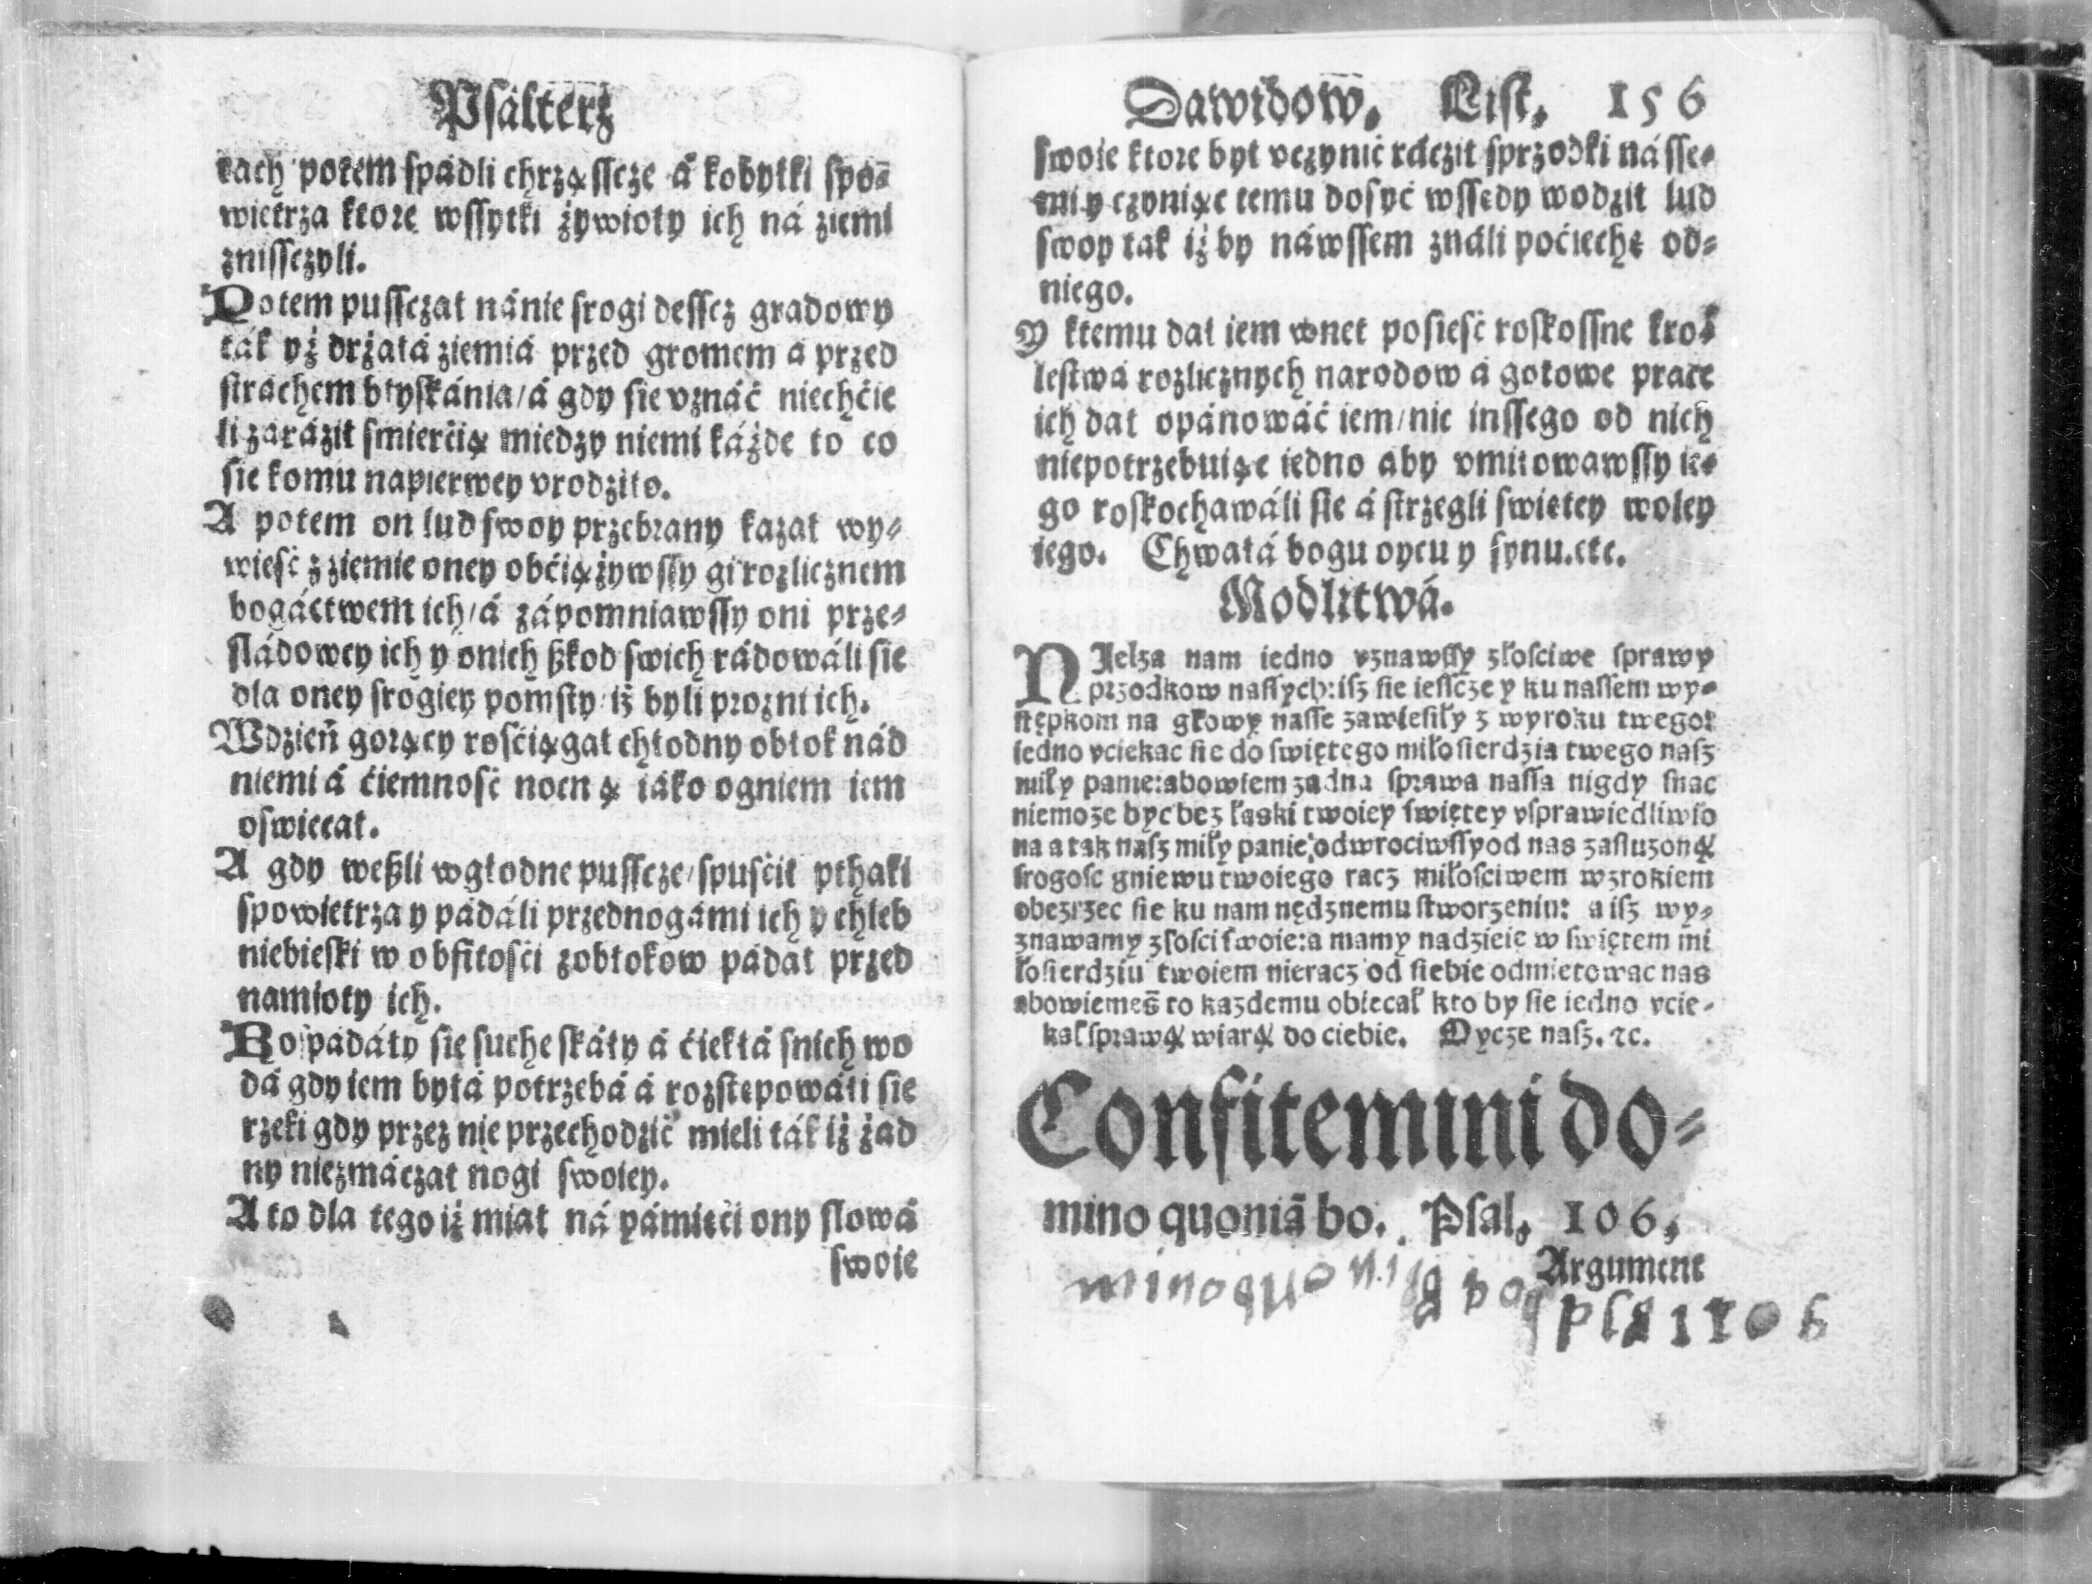 Psálterż
tach potem spádli chrząsscze á kobyłki spo-
wietrza ktore wssytki żywioły ich ná ziemi
znissczyli.
Potem pussczał nánie srogi dessez gradowy
ták yż drżáłá ziemiá przed gromem á przed
stráchem błyskánia/á gdy sie vznáć niechćie
li záráził smierćią miedzy niemi káżde to co
sie komu napierwey vrodziło.
A potem on lud swoy przebrany kazał wy-
wieść z ziemie oney obćiążywssy gi rozlicznem
bogáctwem ich/á zápomniawssy oni prze-
sládowcy ich y onich ßkod swich rádowáli sie
dla oney srogiey pomsty/iż byli prozni ich.
Wdzień gorący rosćiągał chłodny obłok nád
niemi á ćiemnosć nocną iáko ogniem iem
oswiecał.
A gdy weßli wgłodne pussczе/spusćił pthaki
spowietrza y pádáli przednogámi ich y chleb
niebieski w obfitosći zobłokow pádał przed
namioty ich.
Rospadáły sie suche skáły á ćiekłá snich wo
dá gdy iem byłá potrzebá á rozstepowáłi sie
rzeki gdy przez nie przechodzić mieli ták iż żad
ny niezmáczał nogi swoiey.
A to dla tego iż miał ná pámięći ony slowá
swoie
Dawidow. List. 156
swoie ktore był vczynić rácził sprzodki násse-
mi y czyniąc temu dosyć wssedy wodził lud
swoy tak iż by náwssem ználi poćiechę od-
niego.
Y ktemu dał iem wnet posieść roskossne kro-
lestwá rozlicznych narodow á gotowe prace
ich dał opánowáć iem/nic inssego od nich
niepotrzebuiąc iedno aby vmiłowawssy ie-
go roskochawáli sie á strzegli swiętey woley
iego. Chwałá bogu oycu y synu.etc.
Modlitwá.
NIelza nam iedno vznawssy złosciwe sprawy
przodkow nassych: isz sie iesscze y ku nassem wy-
stępkom na głowy nasse zawiesiły z wyroku twego:
iedno vciekac sie do swiętego miłosierdzia twego nasz
miły panie: abowiem zadna sprawa nassa nigdy snac
niemoze byc bez łaski twoiey swiętey vsprawiedliwio
na a tak nasz miły panie odwrociwssy od nas zasluzoną
srogosc gniewu twoiego racz miłosciwem wzrokiem
obezrzec sie ku nam nędznemu stworzeniu: a isz wy-
znawamy złosci swoie: a mamy nadzieię w swiętem mi
łosierdziu twoiem nieracz od siebie odmietowac nas
abowiemes to kazdemu obiecał kto by sie iedno vcie-
kał sprawą wiarą do ciebie. Oycze nasz. &c.
Confitemini do-
mino quoniā bo. Psal. 106.
Argument
minoquonia bo psal 106